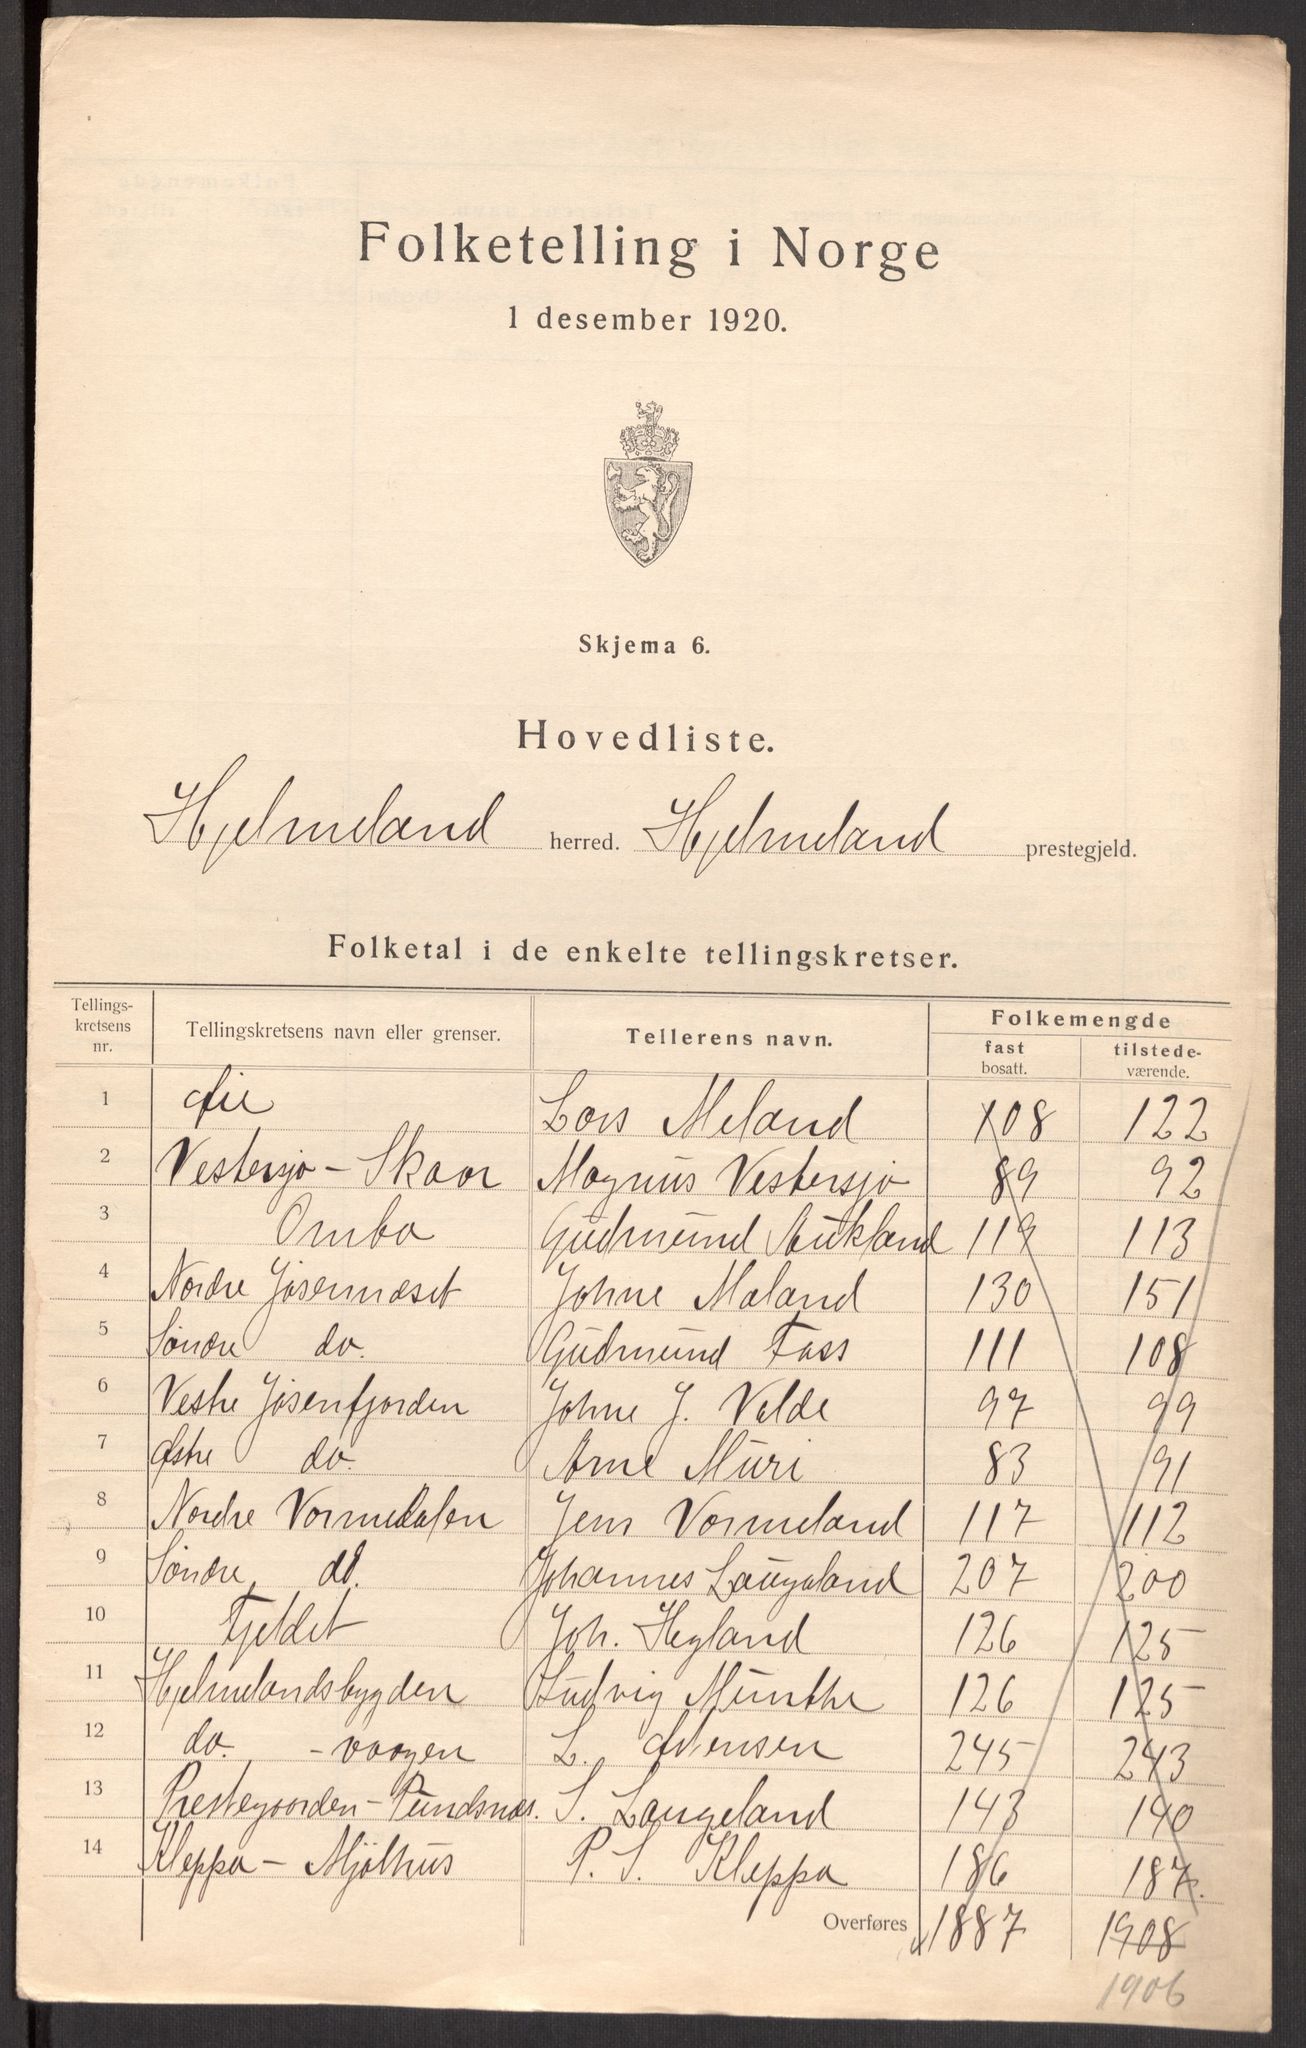 Folketelling i Norge
1 desember 1920.
Skjema 6.
Hovedliste.
Hjelmeland herred. Hjelmeland prestegjeld.
Folketal i de enkelte tellingskretser.
Tellings-kretsens nr. Tellingskretsens navn eller grenser. Tellerens navn. Folkemengde
fast bosatt. tilstede-værende.
1 Øie Lars Meland 108 122
2 Vestersjø - Skaar Magnus Vestersjø 89 92
3 Ombo Gudmund Aukland 119 113
4 Nordre Jøsenneset Johne Maland 130 151
5 Søndre do. Gudmund Foss 111 108
6 Vestre Jøsenfjorden Johne J. Valde 97 99
7 Østre do. Arne Muri 83 91
8 Nordre Vormedalen Jens Vormeland 117 112
9 Søndre do. Johannes Laugaland 207 200
10 Fjeldet Joh. Hegland 126 125
11 Hjelmelandsbygden Ludvig Munthe 126 125
12 do. - vaagen L. 245 243
13 Prestegaarden - Pundsnes. S. Laugeland 143 140
14 Kleppa - Mjølhus P. S. Kleppa 186 187.
Overføres 1887 1908
1906